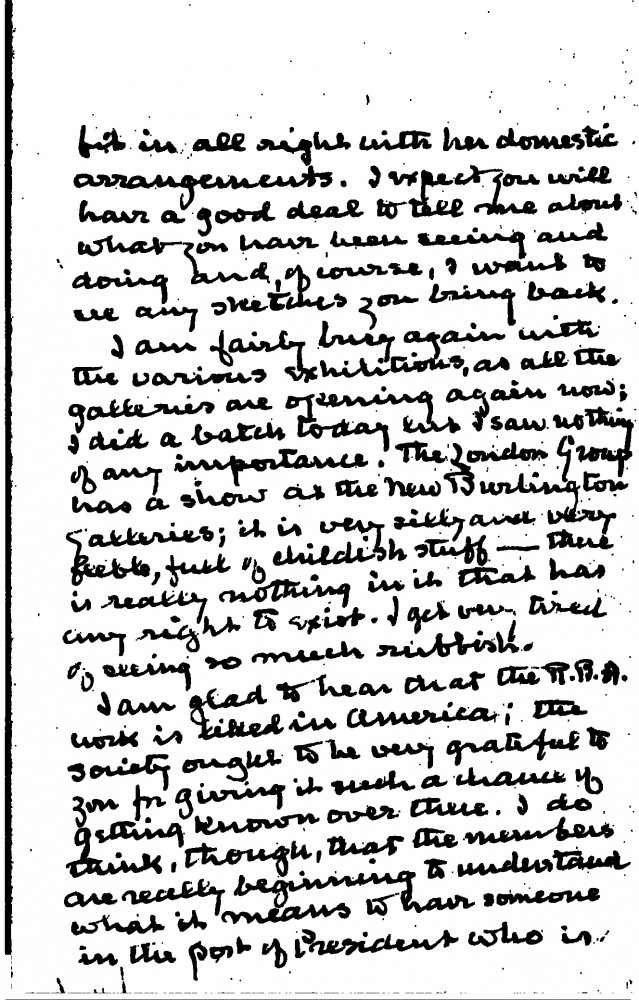 fit in all right with her domestic
arrangements. I expect you will
have a good deal to tell me about
what you have been seeing and
doing and, of course, I want to
see any sketches you bring back.
I am fairly busy again with
the various exhibitions, as all the
galleries are opening again now;
I did a batch today but I saw nothing
of any importance. The London Group
has a show at the New Burlington
Galleries; it is very silly and very
feeble, full of childish stuff — there
is really nothing in it that has
any right to exist. I get very tired
of seeing so much rubbish.
I am glad to hear that the R.B.A.
work is liked in America; the
society ought to be very grateful to
you for giving it such a chance of
getting known over there. I do
think, though, that the members
are really beginning to understand
what it means to have someone
in the post of President who is